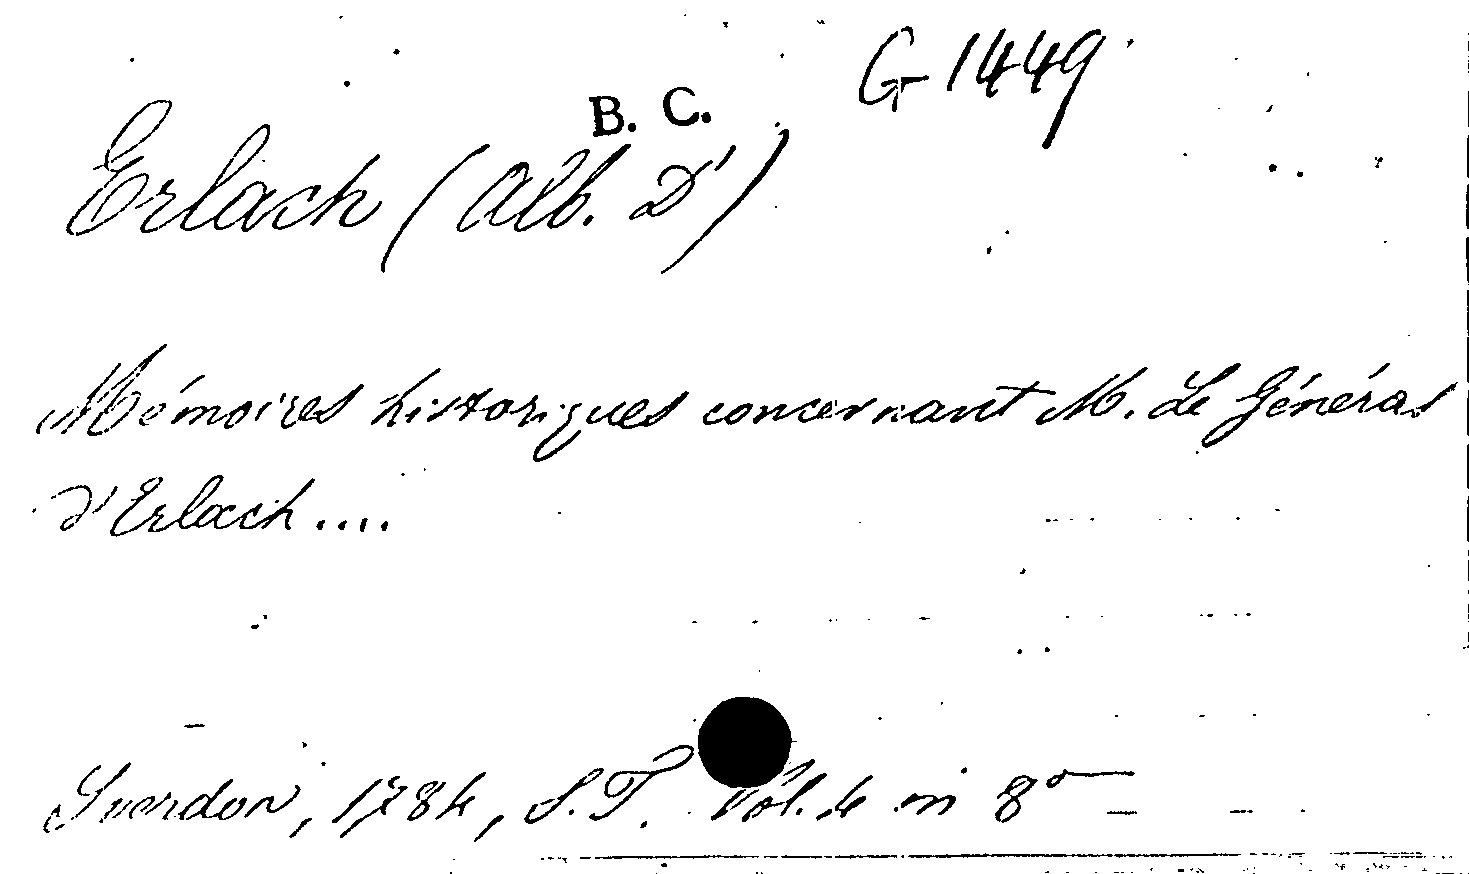 G 1449
B. C.
Erlach (Alb. D')
Mémoires historiques concernant M. Le Général
d'Erlach....
Yverdon, 1784, S.T. Vol. 4 in 8º